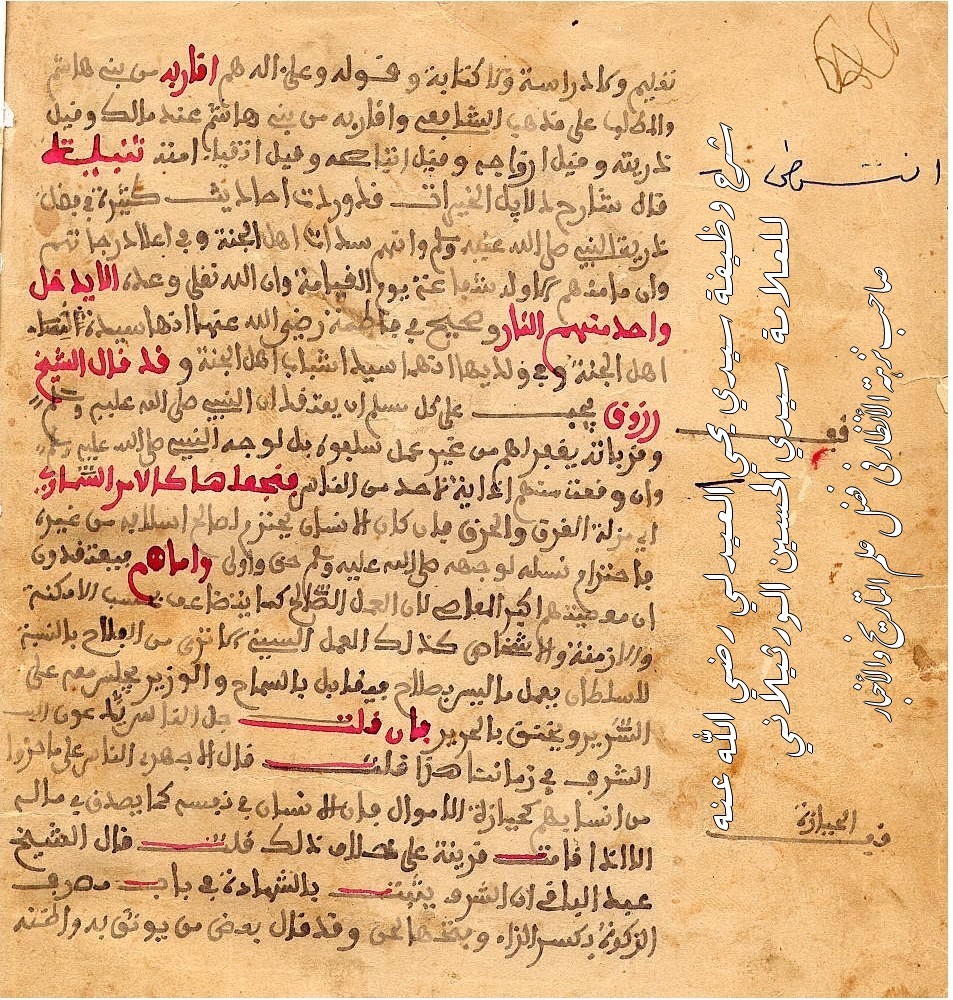 تعليم ولا دراسة ولا كتابة و قوله وعلى اله هم اقاربه من بني هاشم
والمطلب على مذهب الشافعي واقاربه من بني هاشم عند مالك وقيل
ذريته وقيل ازواجه وقيل اتباعه وقيل اتقياء امته تنبيه
قال شارح دلايل الخيرات قد وردت احاديث كثيرة في فضل
ذرية النبي صلى الله عليه وسلم وانهم سادات اهل الجنة وفي اعلا درجاتهم
وان الله تعلى وعده الا يدخل
واحد منهم النار وصحيح في فاطمة رضي الله عنها انها سيدة نساء
اهل الجنة وفي ولديها انهما سيدا شباب اهل الجنة و قد قال الشيخ
زروق يجب على كل مسلم ان يعتقد ان النبي صلى الله عليه وسلم
من غير عمل بل لوجه النبي صلى الله عليه وسلم
وان وقعت منهم اذاية لاحد من الناس فنجعلها كالامر السماوي
اي منزلة الغرق والحرق فان كان الانسان يحترم لصالح اسلافه من غيره
فاحترام نسله لوجهه صلى الله عليه وسلم حق واولى واما هم فيعتقدون
ان معصيتهم اكبر المعاصي لان العمل الصالح كما يتضاعف بحسب الامكنة
والازمنة والاشخاص كذلك العمل السيئ
للسلطان يعمل ما ليس بصلاح فيقابل بالسماح والوزير يجلس معه على
السرير ويخنق بالحرير فان قلت جل الناس يدعون
الشرف في زماننا هذا قلت قال الاجهوري الناس على ما حازوا
من انسابهم كحيازة الاموال فان الانسان في نفسه كما يصدق في ماله
الا اذا قامت قرينة على خلاف ذلك قلت قال الشيخ
عبد الباقي ان الشرف يثبت بالشهادة في باب مصرف
الزكوة بكسر الزاء وقد قال بعض من يوثق به
انت
قف
قف
الحيازة
شرح وظيفة سيدي يحي العيدلي رضي الله عنه
للعلامة سيدي الحسين الورثيلاني
صاحب نزهة الأنظار في فضل علم التاريخ والأخبار